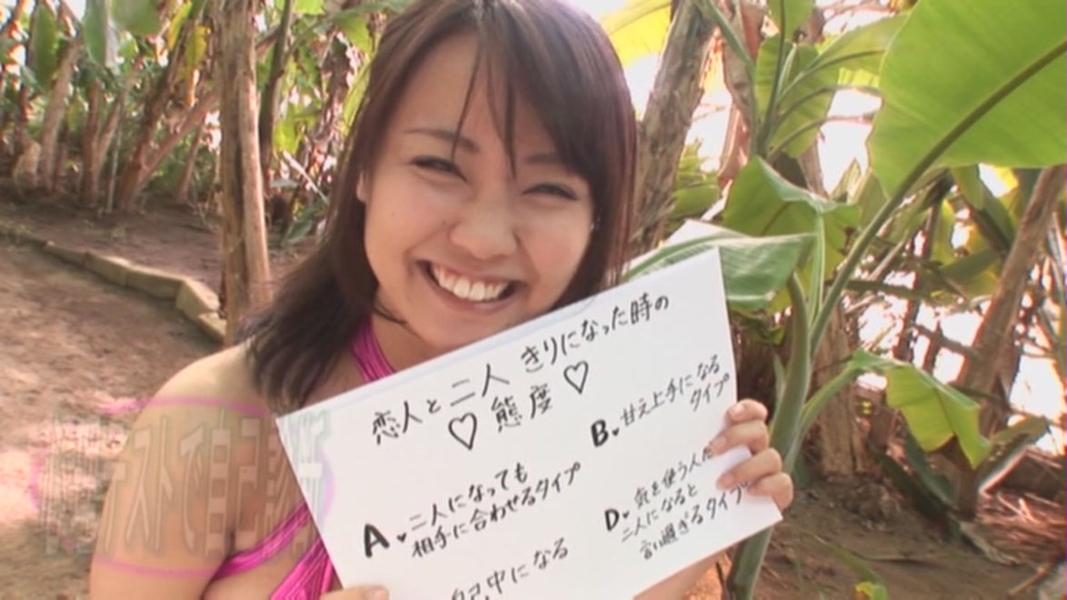 恋人と二人きりになった時の
♡態度♡
A. 二人になっても
相手に合わせるタイプ
B. 甘え上手になる
タイプ
自己中になる
D. 気を使う人だ
二人になると
言い過ぎるタイプ